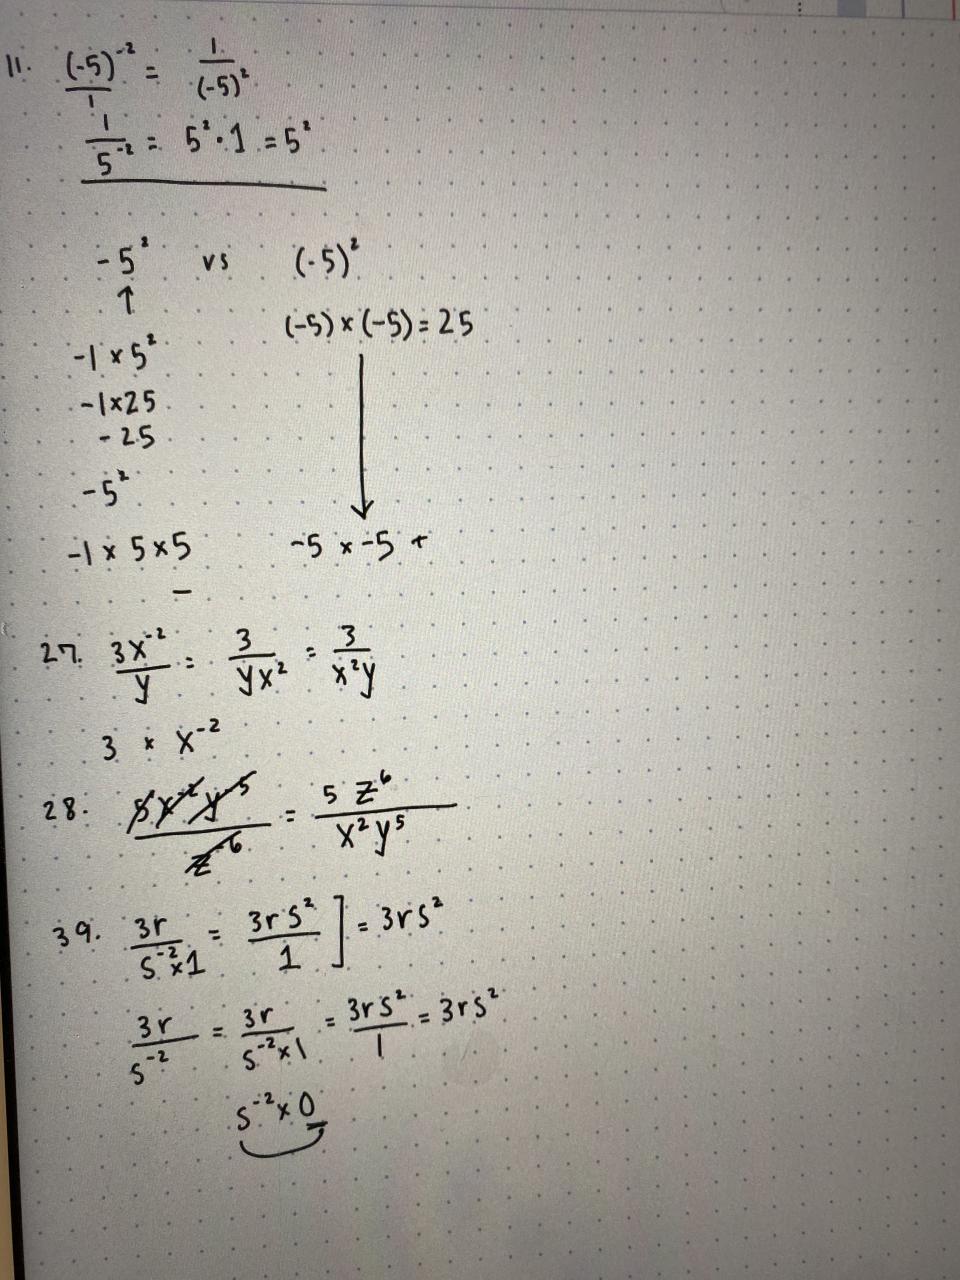 11. (-5)⁻²/1 = 1/(-5)²
1/5⁻² = 5²·1 = 5²
-5² vs (-5)²
↑
(-5) × (-5) = 25
-1 × 5²
-1×25
-25
-5²
-1 × 5 × 5
-5 × -5 +
-
27. 3x⁻²/y = 3/yx² = 3/x²y
3 × x⁻²
28. 5x⁻²y⁻⁵/z⁻⁶ = 5z⁶/x²y⁵
39. 3r/s⁻²×1 = 3rs²/1 ] = 3rs²
3r/s⁻² = 3r/s⁻²×1 = 3rs²/1 = 3rs²
s⁻²×0